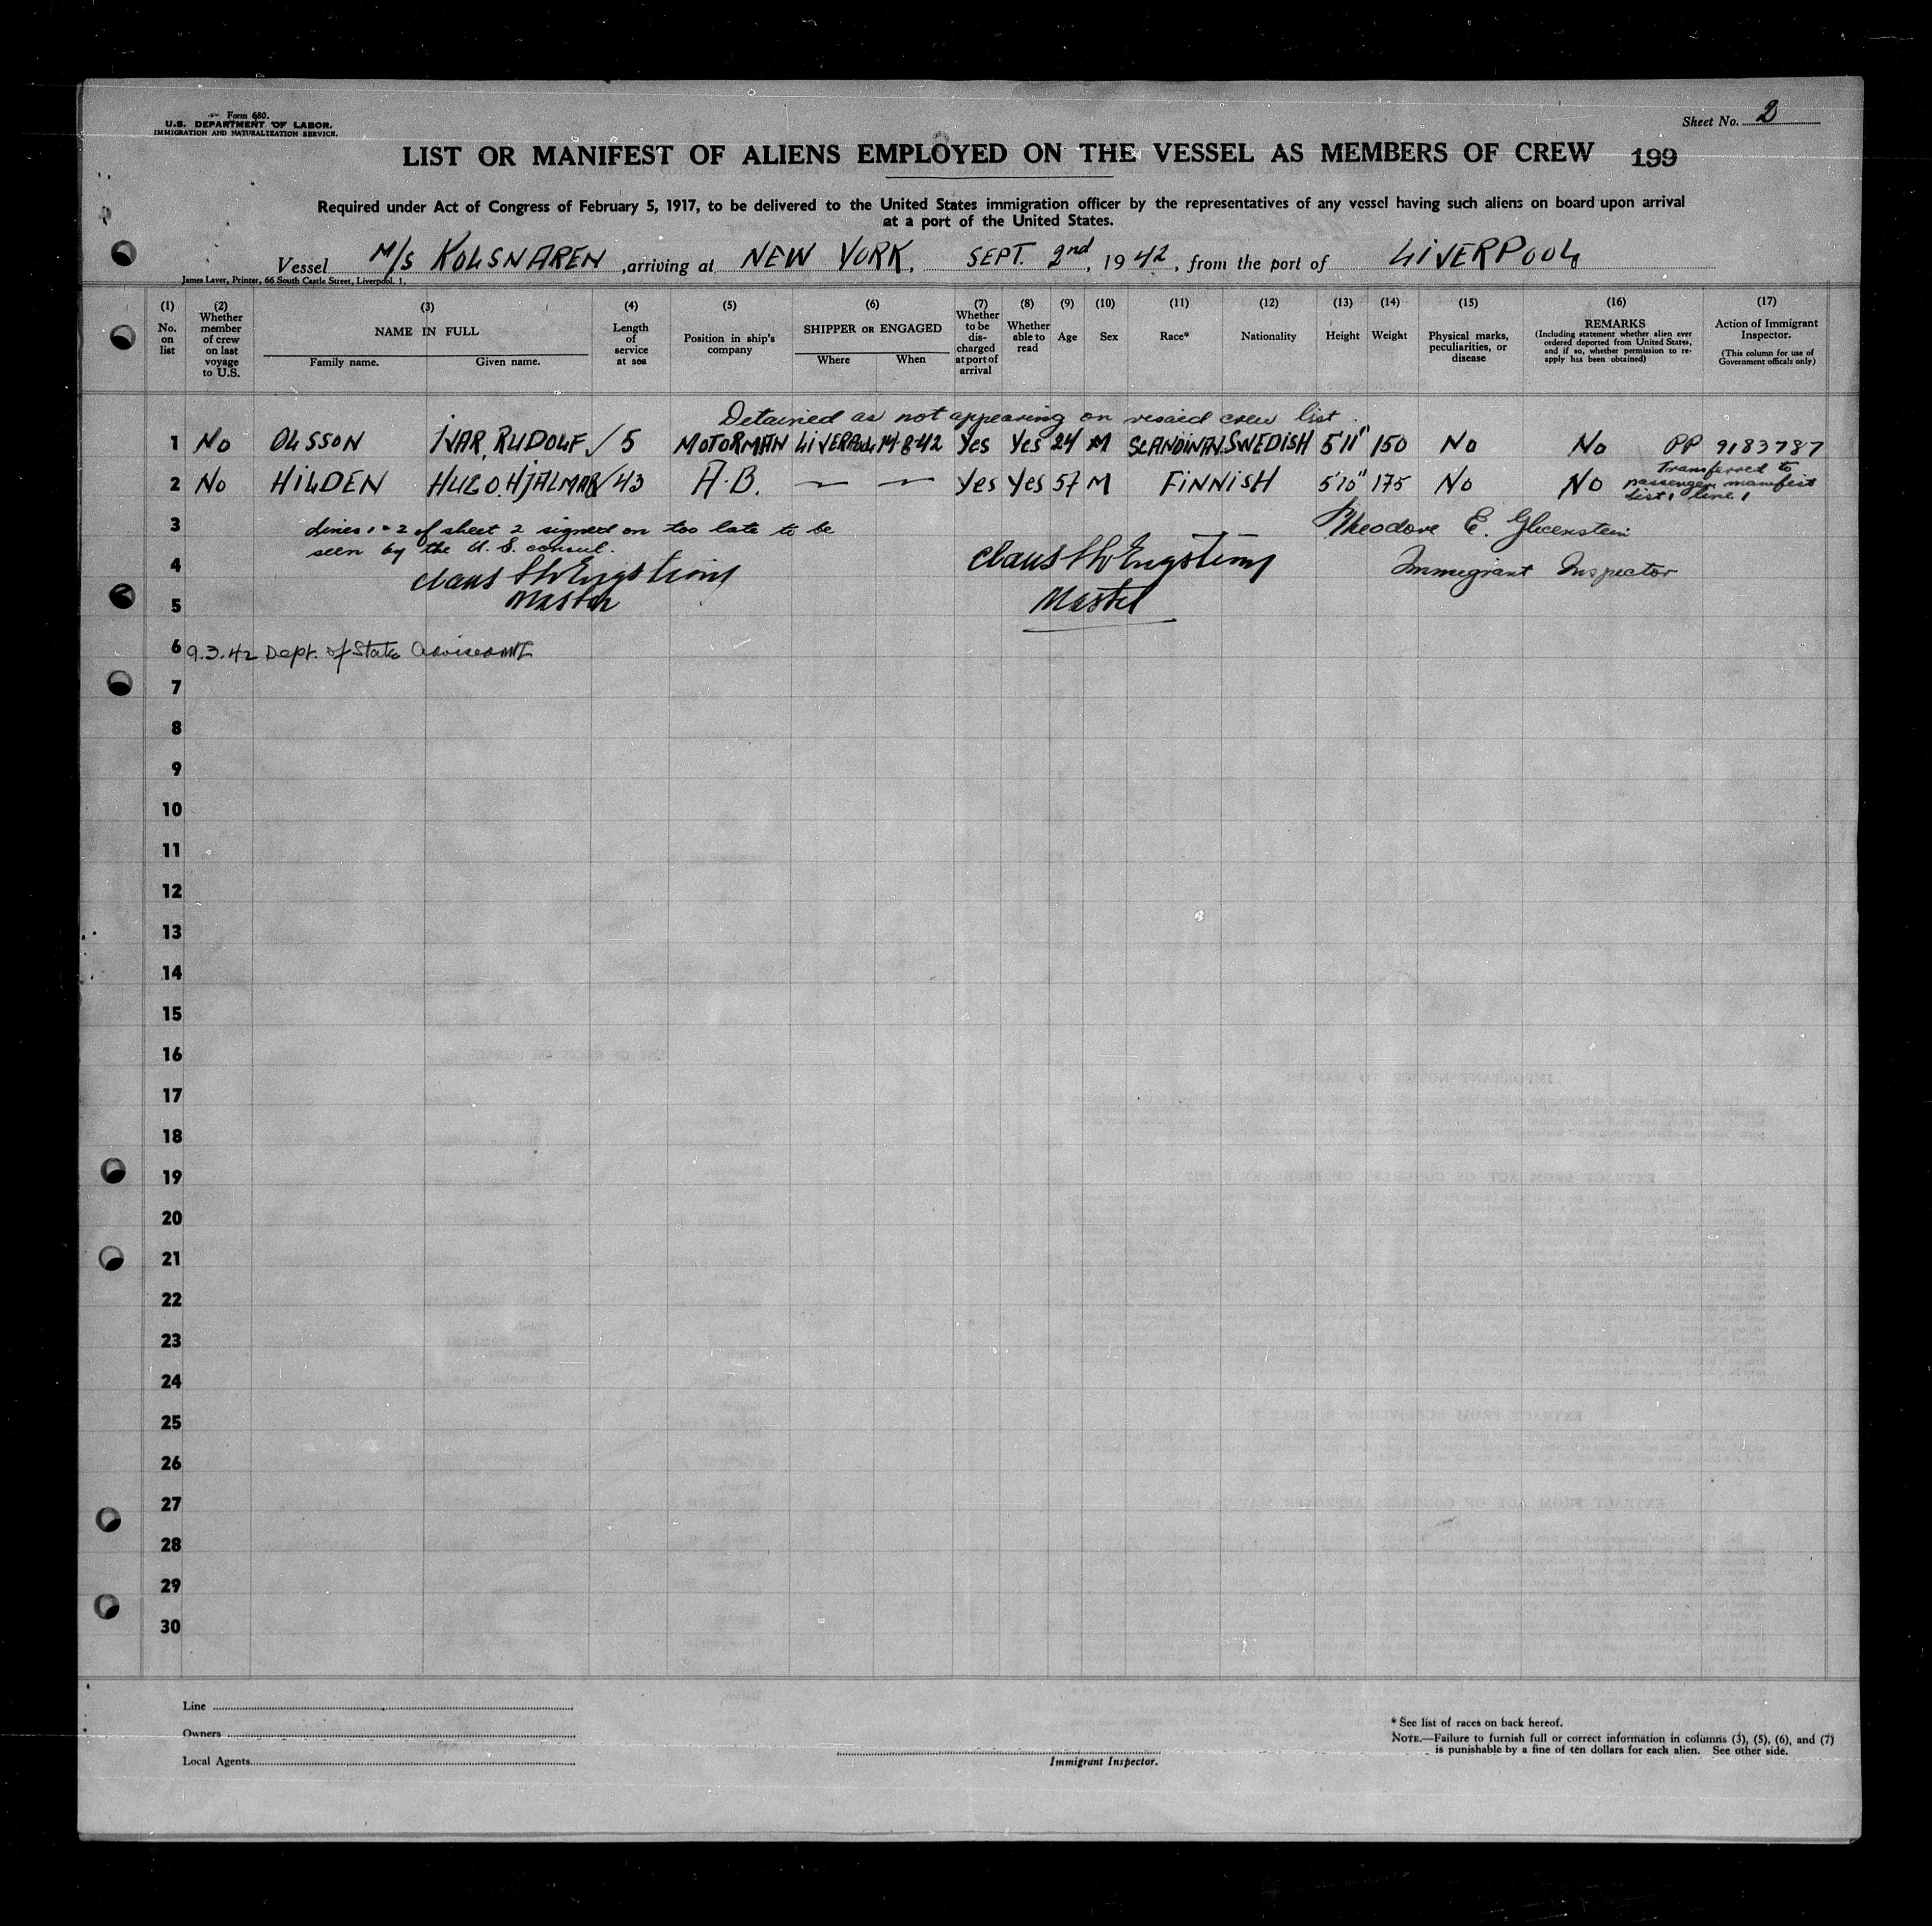 Form 680.
U.S. DEPARTMENT OF LABOR.
IMMIGRATION AND NATURALIZATION SERVICE.
Sheet No. 2
LIST OR MANIFEST OF ALIENS EMPLOYED ON THE VESSEL AS MEMBERS OF CREW 199
Required under Act of Congress of February 5, 1917, to be delivered to the United States immigration officer by the representatives of any vessel having such aliens on board upon arrival
at a port of the United States.
Vessel M/S KOLSNAREN, arriving at NEW YORK, SEPT. 2nd, 1942, from the port of LIVERPOOL
James Laver, Printer, 66 South Castle Street, Liverpool. 1.
(1) No. on list
(2) Whether member of crew on last voyage to U.S.
(3) NAME IN FULL Family name. Given name.
(4) Length of service at sea
(5) Position in ship's company
(6) SHIPPER OR ENGAGED Where When
(7) Whether to be discharged at port of arrival
(8) Whether able to read
(9) Age
(10) Sex
(11) Race*
(12) Nationality
(13) Height
(14) Weight
(15) Physical marks, peculiarities, or disease
(16) REMARKS (Including statement whether alien ever ordered deported from United States, and if so, whether permission to re-apply has been obtained)
(17) Action of Immigrant Inspector. (This column for use of Government officials only)
Detained as not appearing on visaed crew list.
1 No OLSSON IVAR, RUDOLF / 5 MOTORMAN LIVERPOOL 14-8-42 Yes Yes 24 M SCANDINAV. SWEDISH 5'11" 150 No No PP 9183787
2 No HILDEN HUGO. HJALMAR / 43 A.B. — — Yes Yes 57 M FINNISH 5'10" 175 No No Transferred to
passenger manifest
List 1 line 1
3 Lines 1 - 2 of sheet 2 signed on too late to be
seen by the U.S. consul.
Theodore E. Glucenstein
4 Claus Engström Claus Engström Immigrant Inspector
5 Master Master
6 9.3.42 Dept. of State advised
7
8
9
10
11
12
13
14
15
16
17
18
19
20
21
22
23
24
25
26
27
28
29
30
Line
Owners
Local Agents
Immigrant Inspector.
* See list of races on back hereof.
NOTE.—Failure to furnish full or correct information in columns (3), (5), (6), and (7)
is punishable by a fine of ten dollars for each alien. See other side.